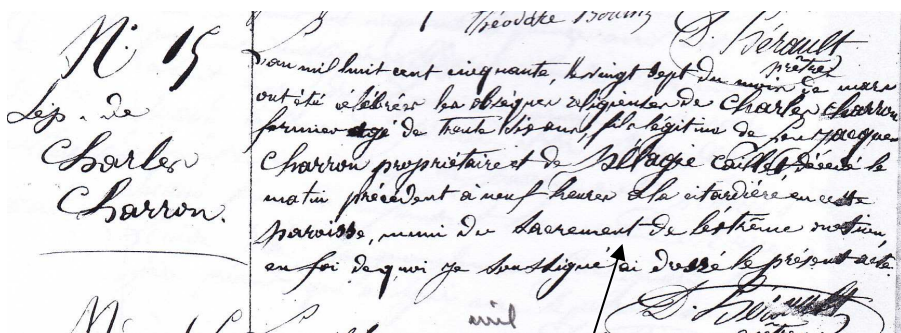 Théodore
D. Hérault
prêtre
N: 15
Sép. de
Charles
Charron.
L'an mil huit cent cinquante, le vingt sept du mois de mars
ont été célébrées les obsèques religieuses de Charles Charron
fermier agé de trente dix ans, fils légitime de feu Jacques
Charron propriétaire et de Pélagie Caillet, décédé le
matin précédent à neuf heures à la citardière en cette
paroisse, muni du Sacrement de l'extrême onction,
en foi de quoi je soussigné ai dressé le présent acte.
D. Hérault
mil